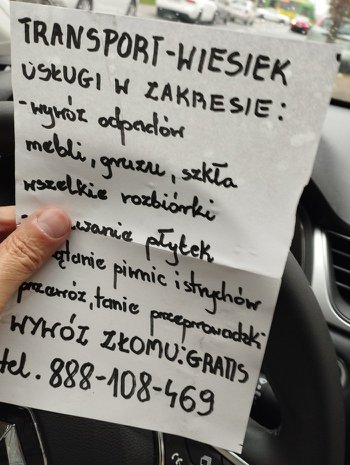 TRANSPORT-WIESIEK
USŁUGI W ZAKRESIE:
-wywóz odpadów
mebli, gruzu, szkła
wszelkie rozbiórki
płytek
piwnic i strychów
przewóz, tanie przeprowadzki
WYWÓZ ZŁOMU:GRATIS
tel. 888-108-469